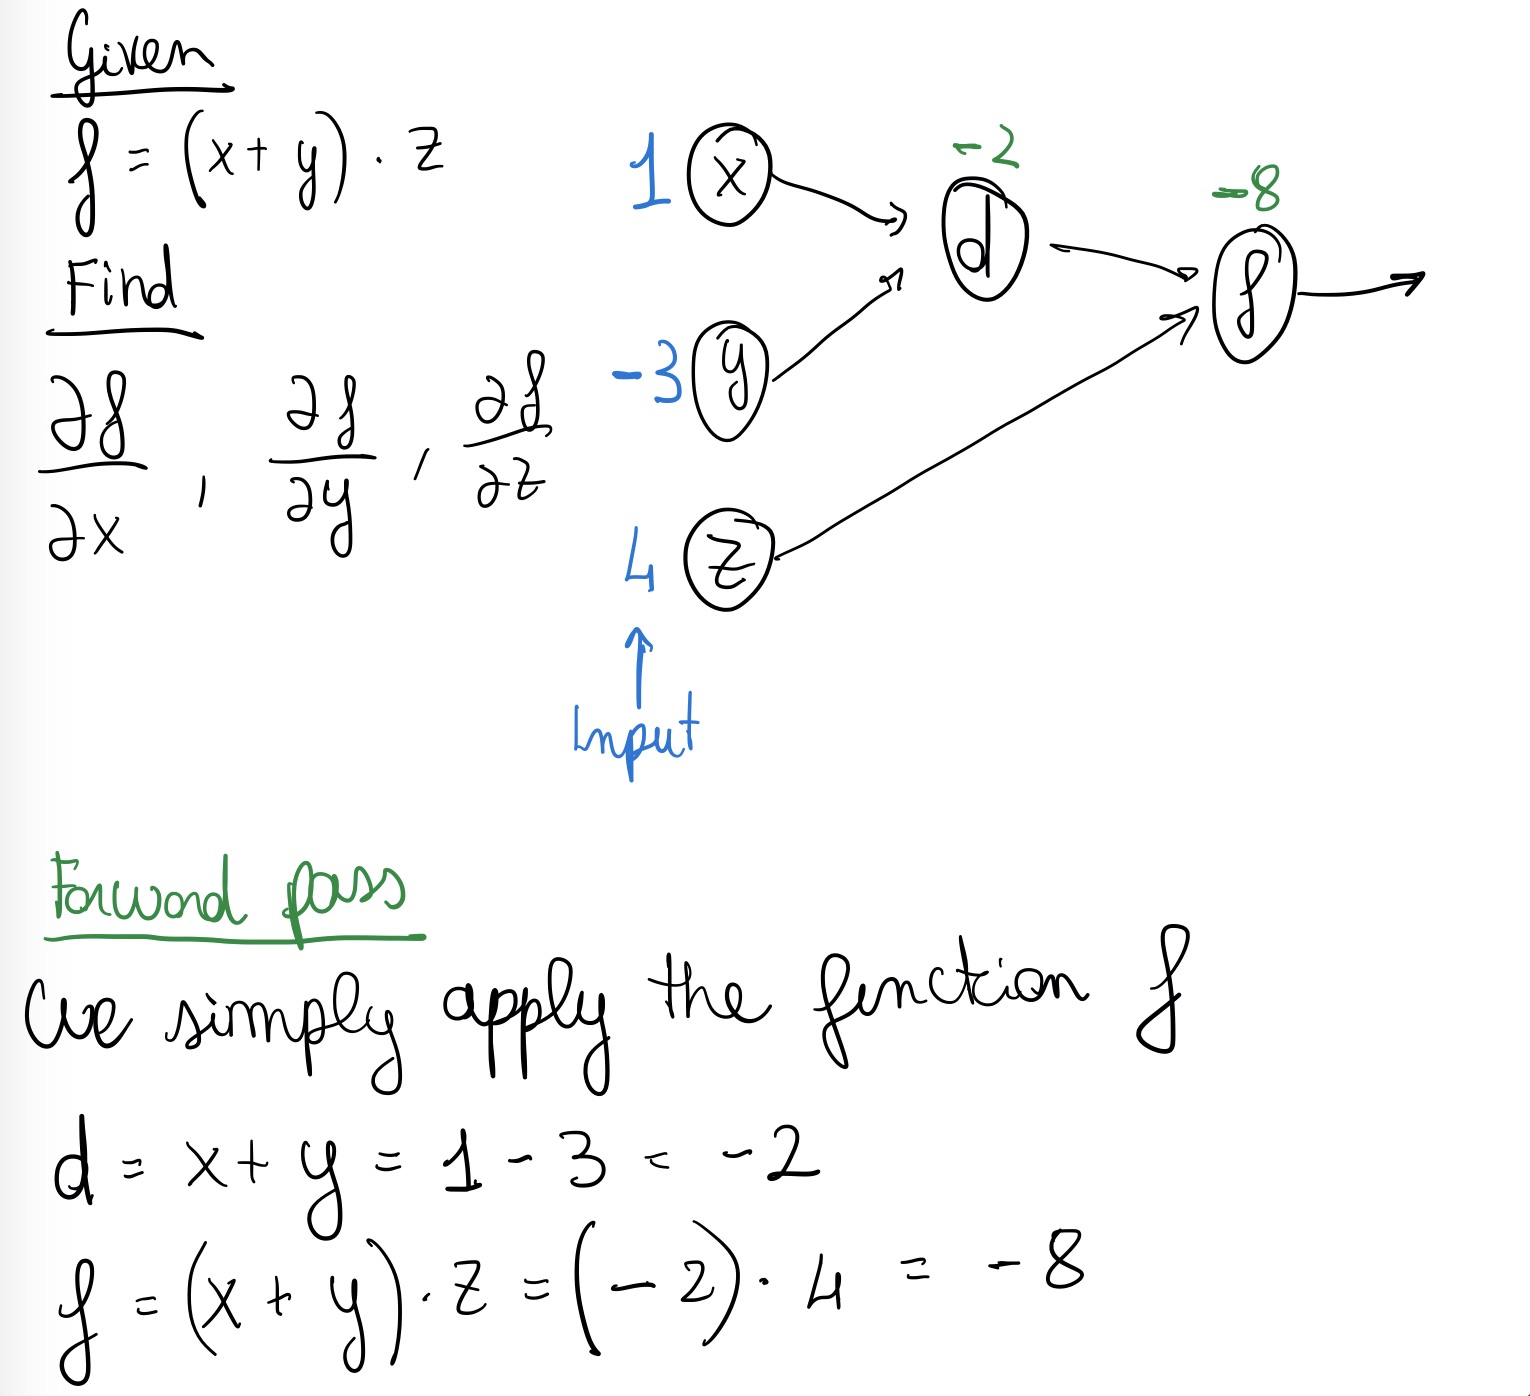 Given
f = (x + y) · z
Find
∂f/∂x , ∂f/∂y , ∂f/∂z
1 x
-3 y
4 z
Input
-2
d
-8
f
Forward pass
we simply apply the function f
d = x + y = 1 - 3 = -2
f = (x + y) · z = (-2) · 4 = -8